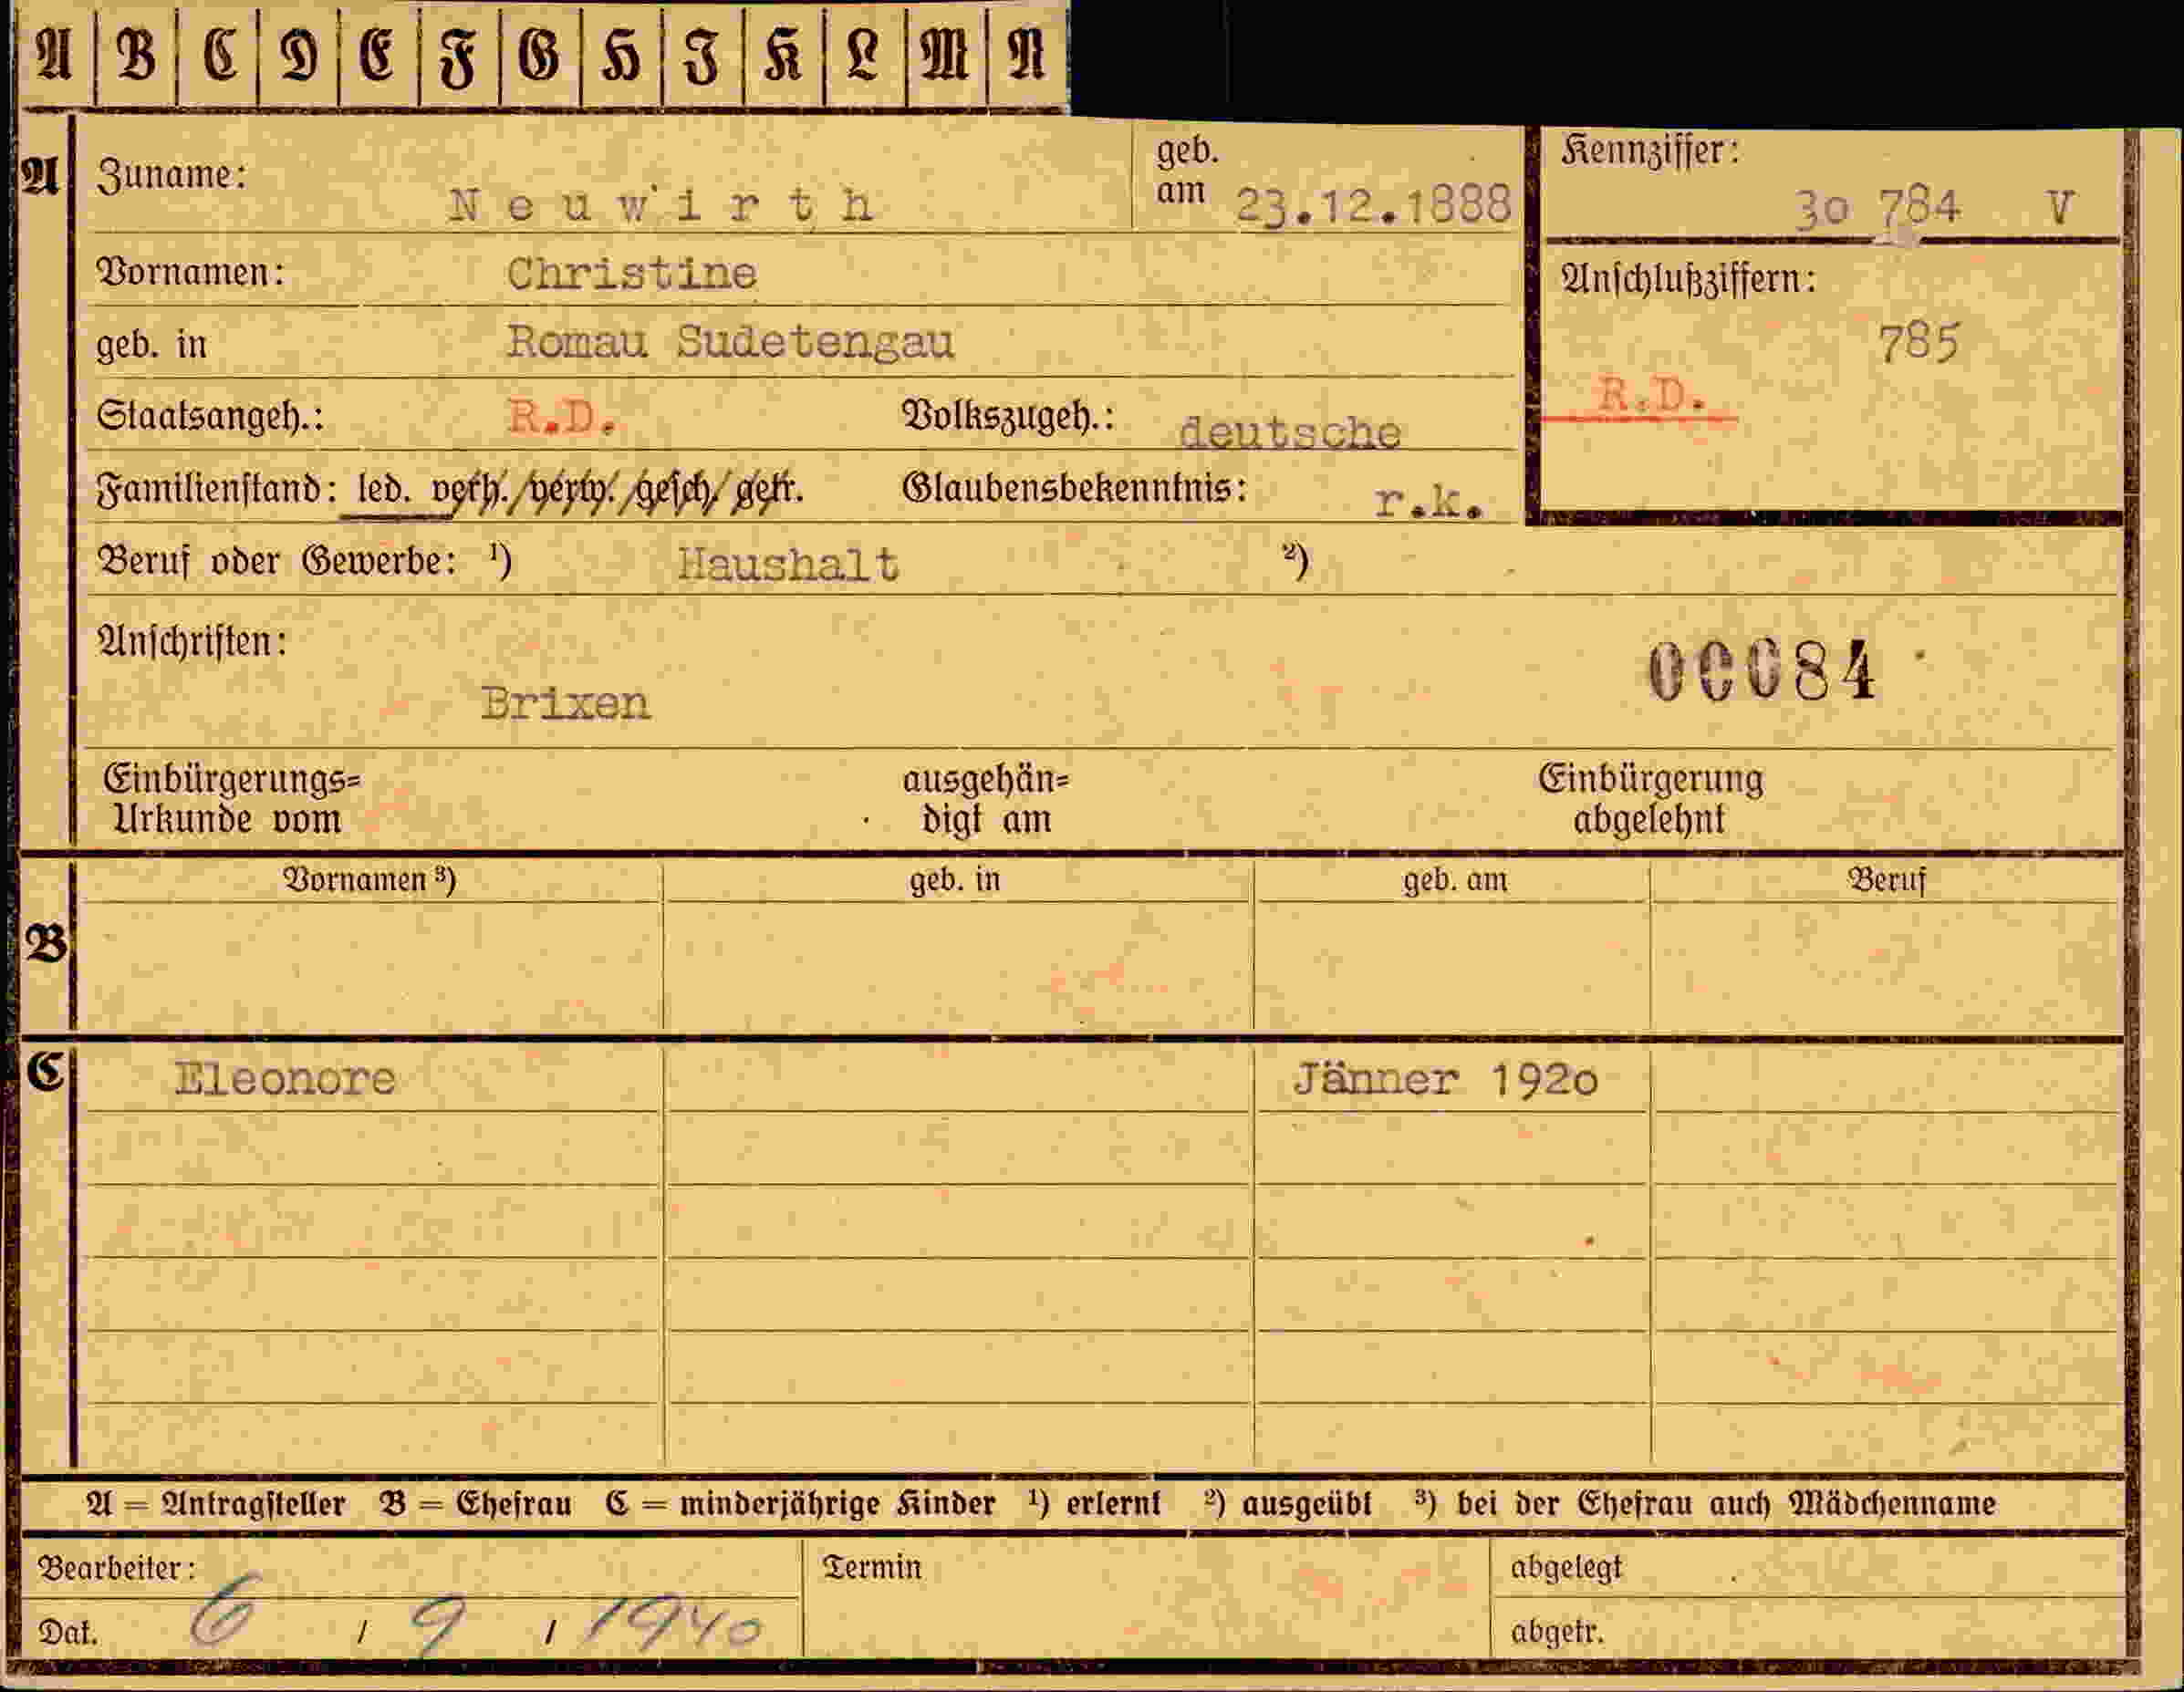 A B C D E F G H I K L M N
A
Zuname: Neuwirth
geb. am 23.12.1888
Kennziffer: 3o 784 V
Vornamen: Christine
Anschlußziffern: 785
R.D.
geb. in Romau Sudetengau
Staatsangeh.: R.D. Volkszugeh.: deutsche
Familienstand: led. verh./verw./gesch./getr. Glaubensbekenntnis: r.k.
Beruf oder Gewerbe: ¹) Haushalt ²)
Anschriften: Brixen
00084
Einbürgerungs=
Urkunde vom
ausgehän=
digt am
Einbürgerung
abgelehnt
B
Vornamen ³) geb. in geb. am Beruf
C
Eleonore Jänner 192o
A = Antragsteller B = Ehefrau C = minderjährige Kinder ¹) erlernt ²) ausgeübt ³) bei der Ehefrau auch Mädchenname
Bearbeiter: Termin abgelegt
Dat. 6 / 9 / 1940 abgetr.